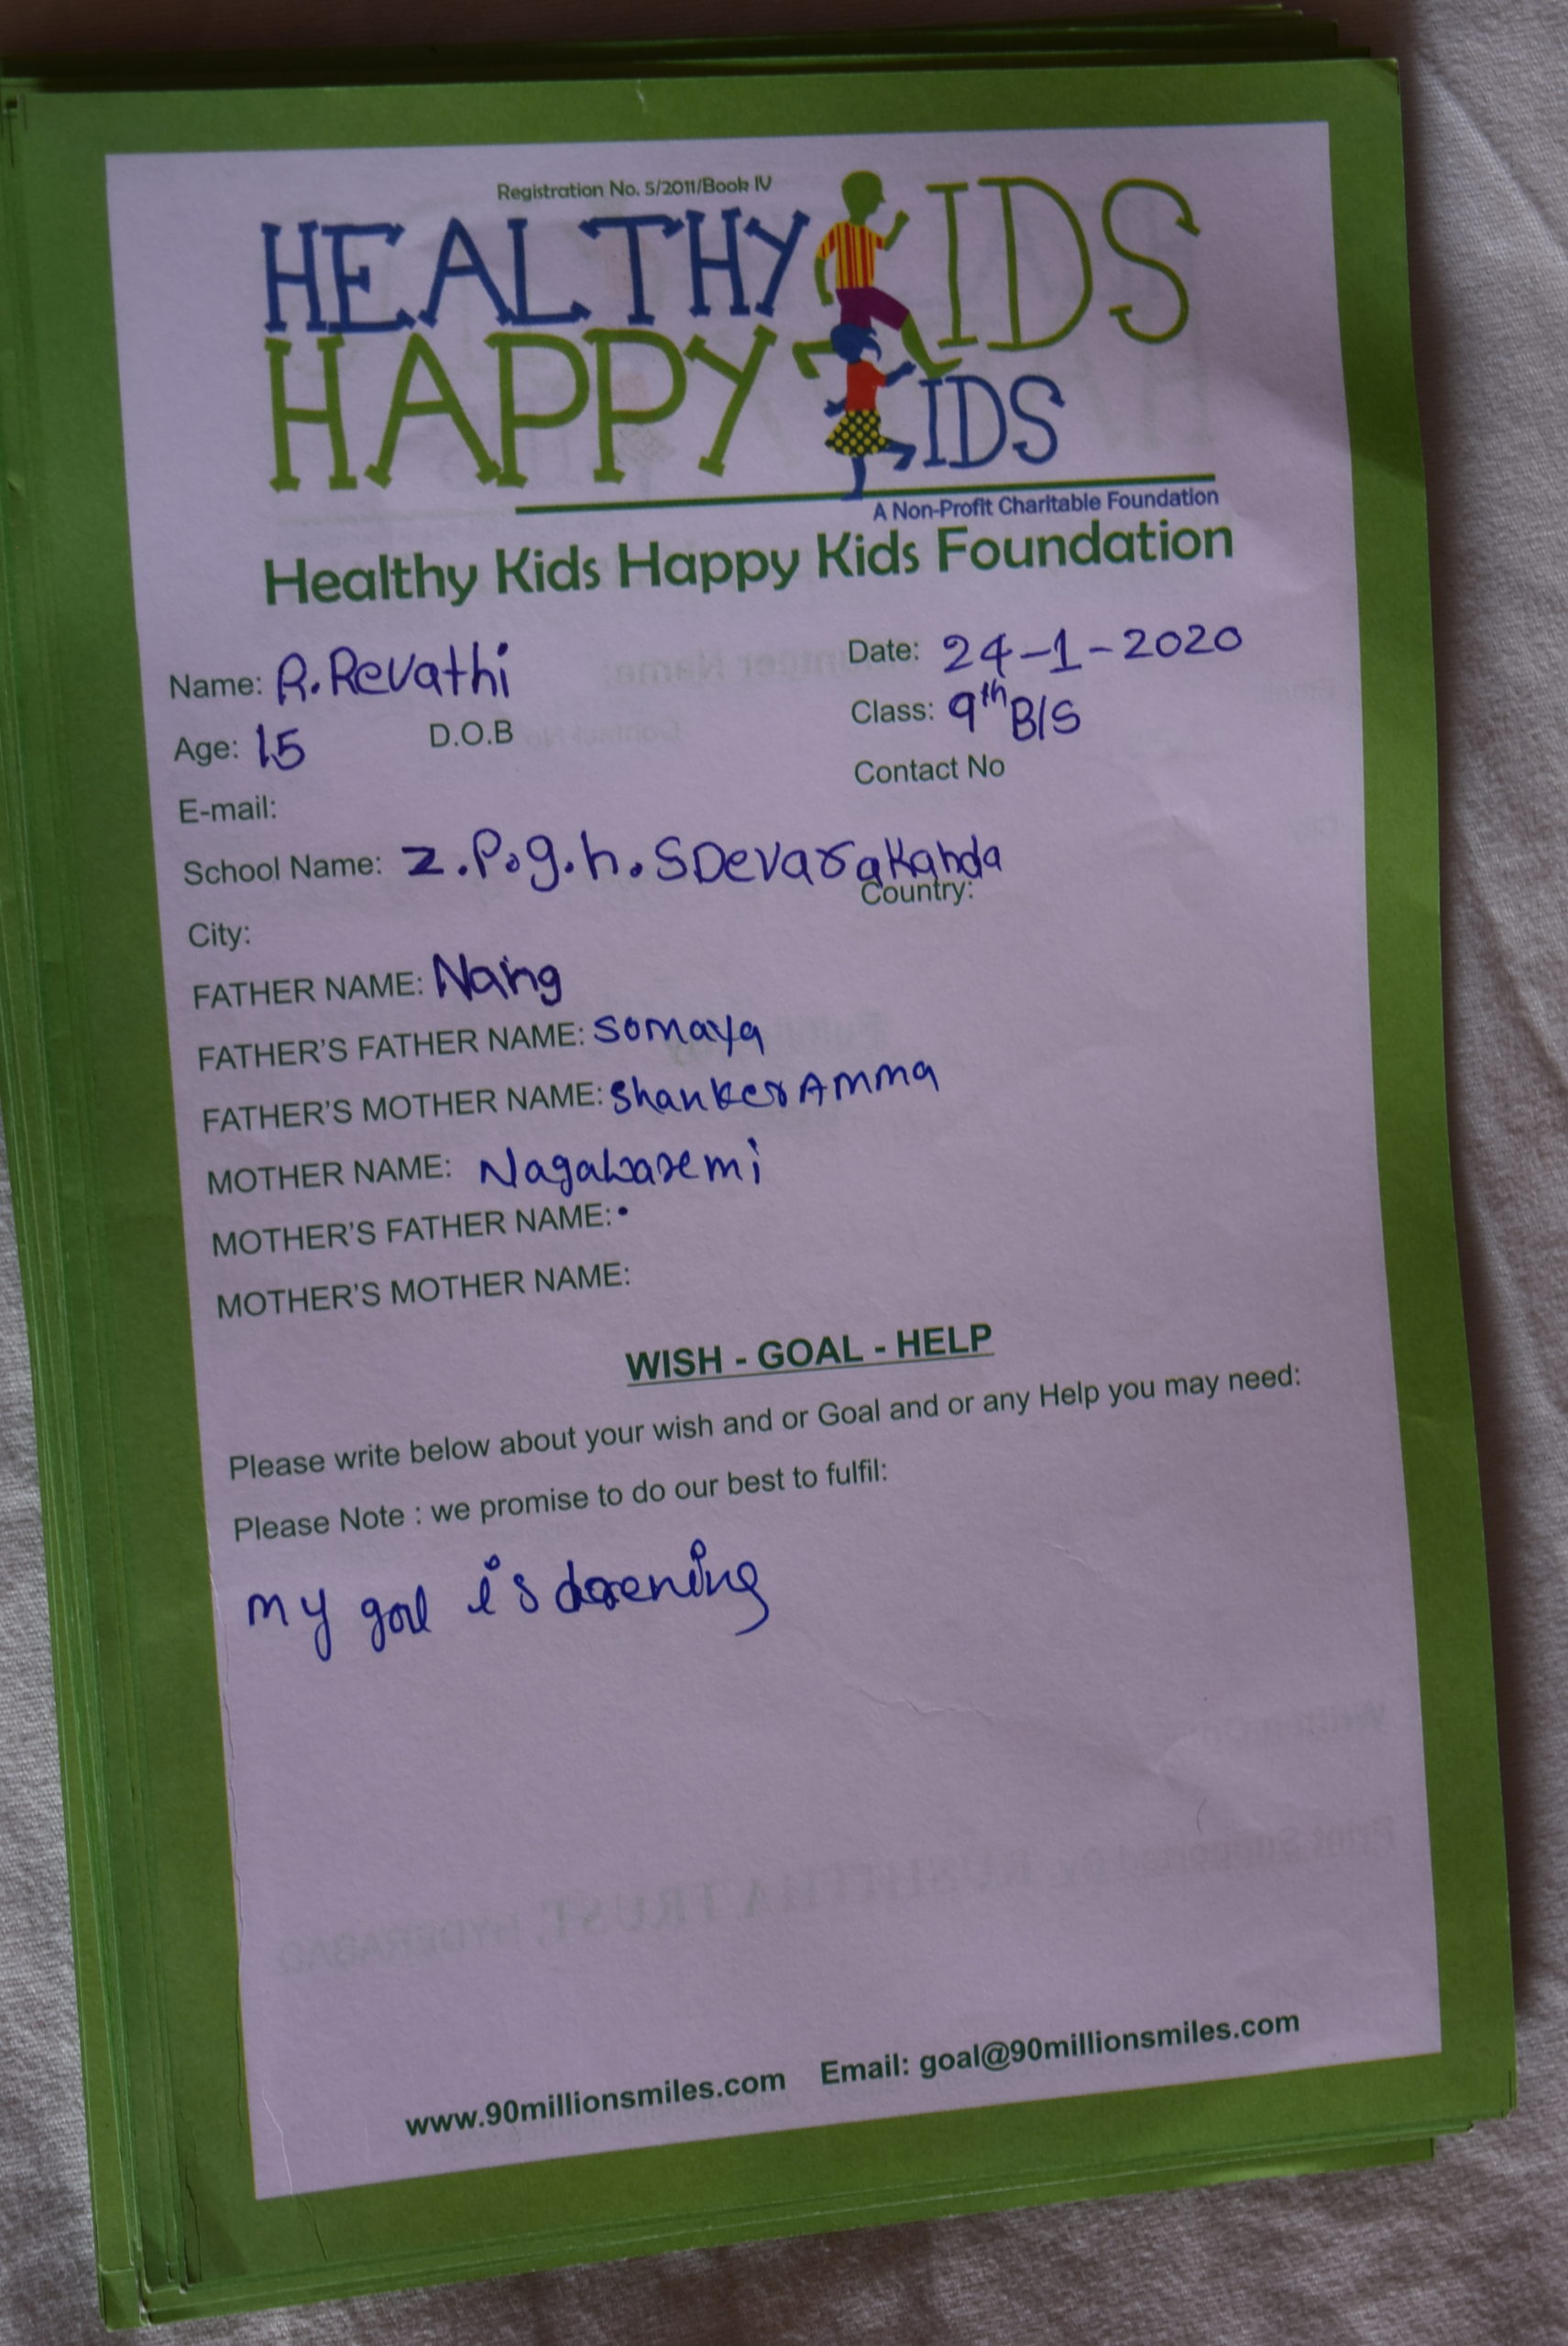 Registration No. 5/2011/Book IV
HEALTHY KIDS
HAPPY KIDS
A Non-Profit Charitable Foundation
Healthy Kids Happy Kids Foundation
Name: R.Revathi Date: 24-1-2020
Age: 15 D.O.B Class: 9th B/S
E-mail: Contact No
School Name: Z.P.g.h.SDevarakanda
City: Country:
FATHER NAME:
FATHER'S FATHER NAME: Somaya
FATHER'S MOTHER NAME: Shanker Amma
MOTHER NAME:
MOTHER'S FATHER NAME:
MOTHER'S MOTHER NAME:
WISH - GOAL - HELP
Please write below about your wish and or Goal and or any Help you may need:
Please Note : we promise to do our best to fulfil:
my goal is
www.90millionsmiles.com Email: goal@90millionsmiles.com